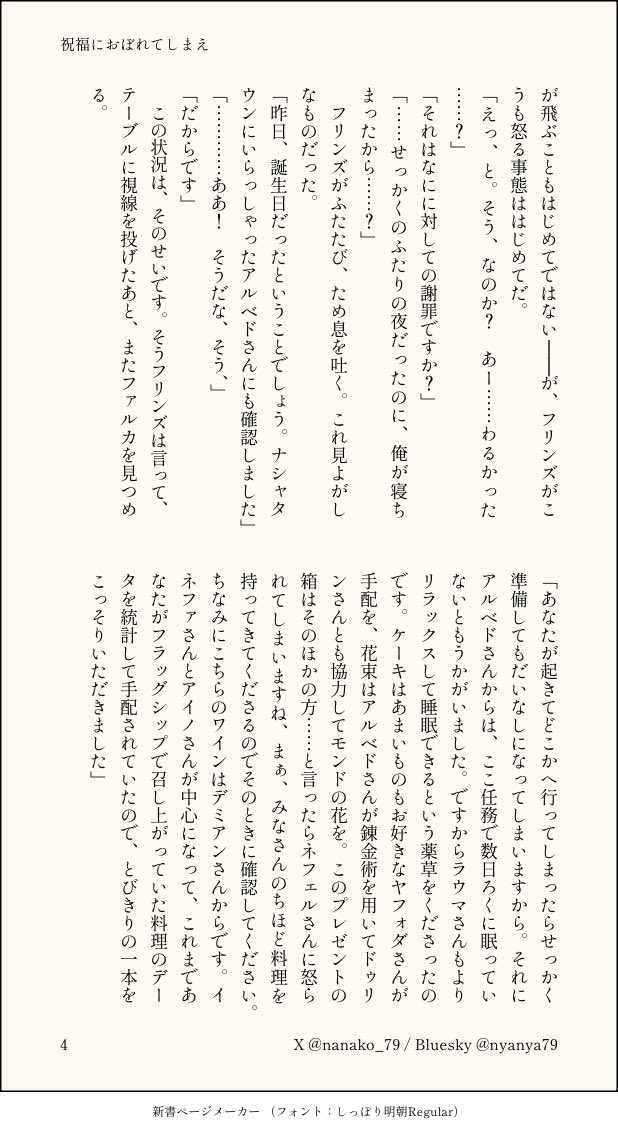 祝福におぼれてしまえ
が飛ぶこともはじめてではない――が、フリンズがこ
うも怒る事態ははじめてだ。
「えっ、と。そう、なのか？　あー……わるかった
……？」
「それはなにに対しての謝罪ですか？」
「……せっかくのふたりの夜だったのに、俺が寝ち
まったから……？」
　フリンズがふたたび、ため息を吐く。これ見よがし
なものだった。
「昨日、誕生日だったということでしょう。ナシャタ
ウンにいらっしゃったアルベドさんにも確認しました」
「…………ああ！　そうだな、そう、」
「だからです」
　この状況は、そのせいです。そうフリンズは言って、
テーブルに視線を投げたあと、またファルカを見つめ
る。
「あなたが起きてどこかへ行ってしまったらせっかく
準備してもだいなしになってしまいますから。それに
アルベドさんからは、ここ任務で数日ろくに眠ってい
ないともうかがいました。ですからラウマさんもより
リラックスして睡眠できるという薬草をくださったの
です。ケーキはあまいものもお好きなヤフォダさんが
手配を、花束はアルベドさんが錬金術を用いてドゥリ
ンさんとも協力してモンドの花を。このプレゼントの
箱はそのほかの方……と言ったらネフェルさんに怒ら
れてしまいますね、まぁ、みなさんのちほど料理を
持ってきてくださるのでそのときに確認してください。
ちなみにこちらのワインはデミアンさんからです。イ
ネファさんとアイノさんが中心になって、これまであ
なたがフラッグシップで召し上がっていた料理のデー
タを統計して手配されていたので、とびきりの一本を
こっそりいただきました」
4
X @nanako_79 / Bluesky @nyanya79
新書ページメーカー （フォント：しっぽり明朝Regular）